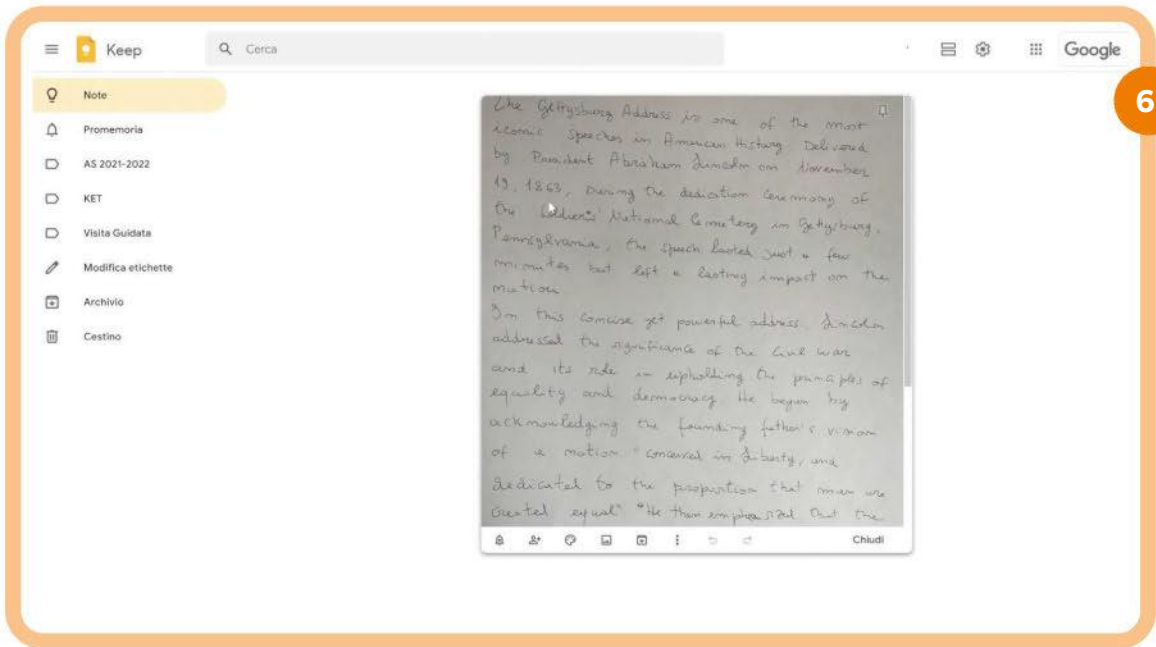 Keep
Cerca
Google
6
Note
Promemoria
AS 2021-2022
KET
Visita Guidata
Modifica etichette
Archivio
Cestino
The Gettysburg Address is one of the most
iconic speeches in American History Delivered
by President Abraham Lincoln on November
19, 1863, During the dedication ceremony of
the Soldier's National Cemetery in Gettysburg,
Pennsylvania, the speech lasted just a few
minutes but left a lasting impact on the
nation
In this concise yet powerful address, Lincoln
addressed the significance of the Civil War
and its role in upholding the principles of
equality and democracy. He began by
acknowledging the founding father's vision
of a nation "conceived in Liberty, and
dedicated to the proposition that men are
created equal" "He then emphasized that the
Chiudi